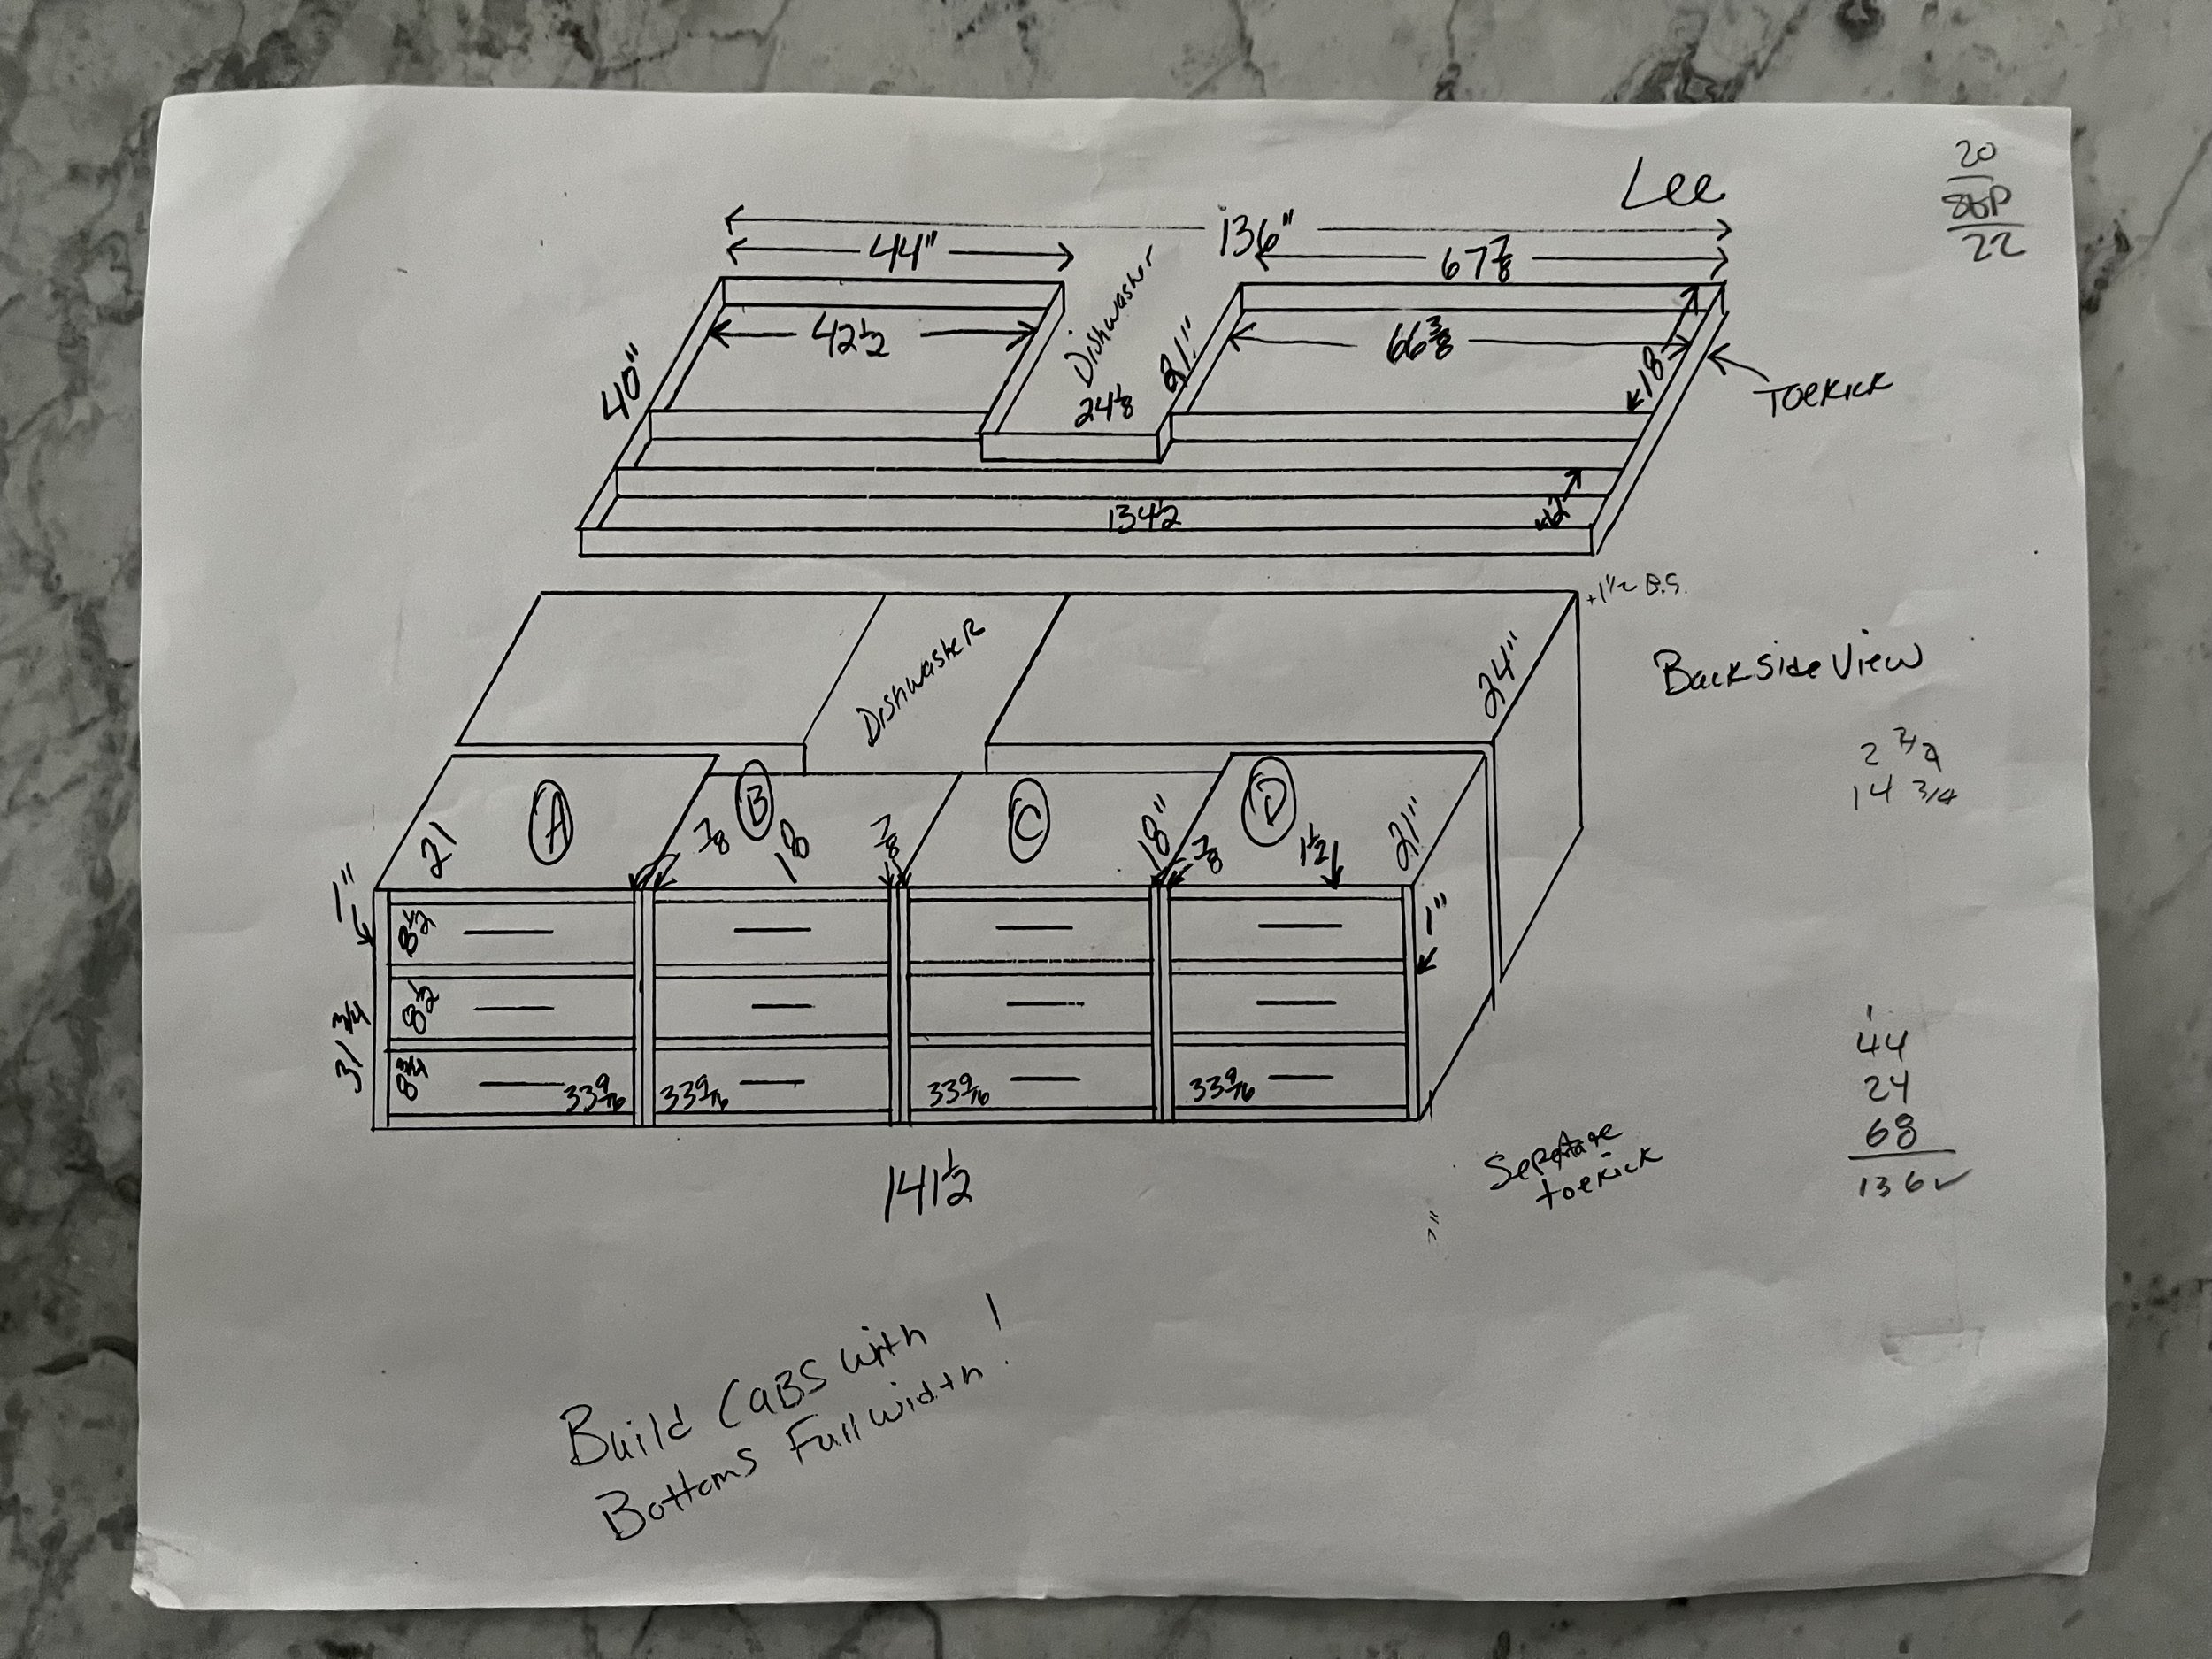 Lee
20
22
136"
44"
67 7/8
Dishwasher
24 1/8
21"
42 1/2
66 3/8
40"
18
Toekick
134 1/2
+1 1/2 B.S.
Dishwasher
24"
Backside View
2 3/4
14 3/4
A
B
C
D
21
7/8
18
7/8
18"
7/8
1 1/2
21"
1"
1"
8 1/2
8 1/2
8 3/4
31 3/4
33 9/16
33 9/16
33 9/16
33 9/16
141 1/2
44
24
68
136 ✓
Seperate
toekick
Build Cabs with
Bottoms Full width!